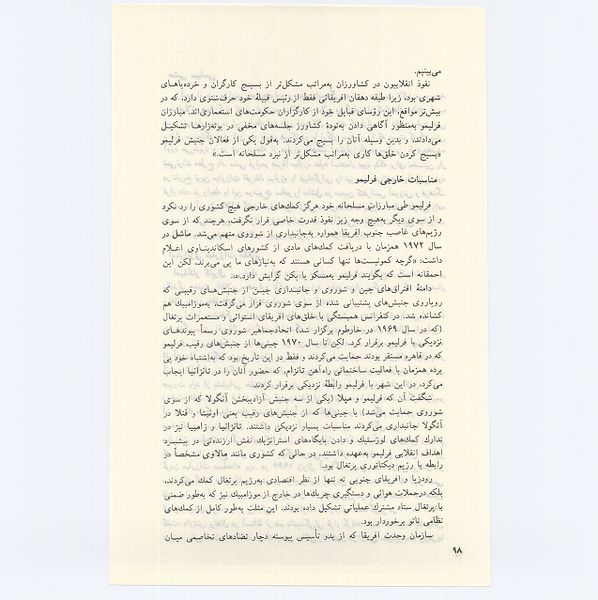 می‌بینیم.
نفوذ انقلابیون در کشاورزان به‌مراتب مشکل‌تر از بسیج کارگران و خرده‌پاهای
شهری بود، زیرا طبقه دهقان افریقائی فقط از رئیس قبیلهٔ خود حرف‌شنوی دارد، که در
بیش‌تر مواقع، این رؤسای قبایل خود از کارگزاران حکومت‌های استعماری‌اند. مبارزان
فرلیمو به‌منظور آگاهی دادن به‌تودهٔ کشاورز جلسه‌های مخفی در بوته‌زارها تشکیل
می‌دادند، و بدین وسیله آنان را بسیج می‌کردند. به‌قول یکی از فعالان جنبش فرلیمو
«بسیج کردن خلق‌ها کاری به‌مراتب مشکل‌تر از نبرد مسلحانه است.»
مناسبات خارجی فرلیمو
فرلیمو طی مبارزات مسلحانه خود هرگز کمك‌های خارجی هیچ کشوری را رد نکرد
و از سوی دیگر به‌هیچ وجه زیر نفوذ قدرت خاصی قرار نگرفت، هرچند که از سوی
رژیم‌های غاصب جنوب افریقا همواره به‌جانبداری از شوروی متهم می‌شد. ماشل در
سال ۱۹۷۲ همزمان با دریافت کمك‌های مادی از کشورهای اسکاندیناوی اعلام
داشت: «گرچه کمونیست‌ها تنها کسانی هستند که به‌نیازهای ما پی می‌برند، لکن این
احمقانه است که بگویند فرلیمو به‌مسکو یا پکن گرایش دارد.»
دامنهٔ افتراق‌های چین و شوروی و جانبداری چین از جنبش‌های رقیبی که
رویاروی جنبش‌های پشتیبانی شده از سوی شوروی قرار می‌گرفت، به‌موزامبیك هم
کشانده شد. در کنفرانس همبستگی با خلق‌های افریقای استوائی و مستعمرات پرتغال
(که در سال ۱۹۶۹ در خارطوم برگزار شد) اتحادجماهیر شوروی رسماً پیوندهای
نزدیکی با فرلیمو برقرار کرد. لکن تا سال ۱۹۷۰ چینی‌ها از جنبش‌های رقیب فرلیمو
که در قاهره مستقر بودند حمایت می‌کردند و فقط در این تاریخ بود که به‌اشتباه خود پی
برده همزمان با فعالیت ساختمانی راه‌آهن تانزام، که حضور آنان را در تانزانیا ایجاب
می‌کرد، در این شهر با فرلیمو رابطهٔ نزدیکی برقرار کردند.
شگفت آن که فرلیمو و مپلا (یکی از سه جنبش آزادیبخش آنگولا که از سوی
شوروی حمایت می‌شد) با چینی‌ها که از جنبش‌های رقیب یعنی اونیتا و فنلا در
آنگولا جانبداری می‌کردند مناسبات بسیار نزدیکی داشتند. تانزانیا و زامبیا نیز در
تدارك کمك‌های لوژستیك و دادن پایگاه‌های استراتژیك نقش ارزنده‌ئی در پیشبرد
اهداف انقلابی فرلیمو به‌عهده داشتند، در حالی که کشوری مانند مالاوی مشخصاً در
رابطه با رژیم دیکتاتوری پرتغال بود.
رودزیا و افریقای جنوبی نه تنها از نظر اقتصادی به‌رژیم پرتغال کمك می‌کردند،
بلکه‌درحملات هوائی و دستگیری چریك‌ها در خارج از موزامبیك نیز که به‌طور ضمنی
با پرتغال ستاد مشترك عملیاتی تشکیل داده بودند. این مثلث به‌طور کامل از کمك‌های
نظامی ناتو برخوردار بود.
سازمان وحدت افریقا که از بدو تأسیس پیوسته دچار تضادهای تخاصمی میان
۹۸